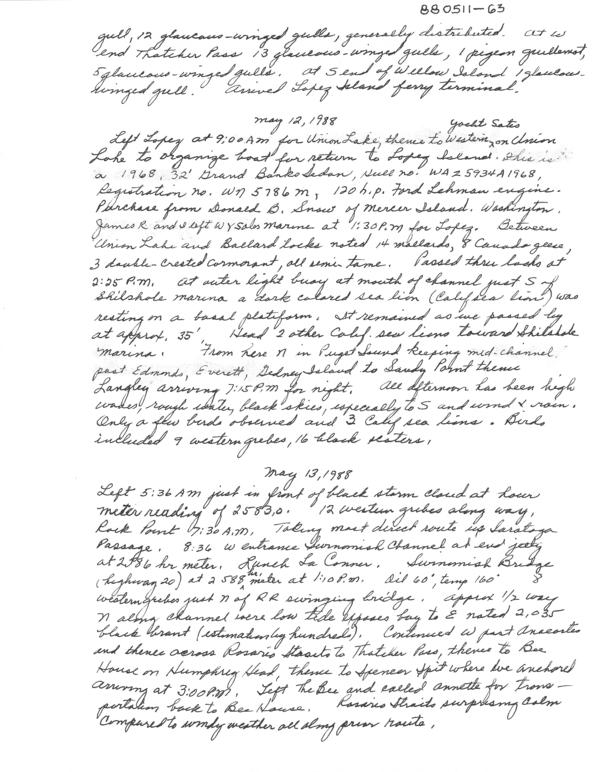 880511-63
gull, 12 glaucous-winged gulls, generally distributed. At W
end Thatcher Pass 13 glaucous-winged gulls, 1 pigeon guillemot,
5 glaucous-winged gulls. At S end of Willow Island 1 glaucous-
winged gull. Arrived Lopez Island ferry terminal.
May 12, 1988
Yacht Sales
Left Lopez at 9:00 AM for Union Lake, thence to Western, on Union
Lake to organize boat for return to Lopez Island. This is
a 1968, 32' Grand Banks Sedan, Hull no. WAZ5934A1968,
Registration no. WN 5786 M, 120 h.p. Ford Lehman engine.
Purchase from Donald B. Snow of Mercer Island, Washington.
James R and I left W Y Sales Marine at 1:30 P.M for Lopez. Between
Union Lake and Ballard locks noted 14 mallards, 8 Canada geese,
3 double-crested cormorant, all semi tame. Passed thru locks at
2:25 P.M. At outer light buoy at mouth of channel just S of
Shilshole marina a dark colored sea lion (Calif sea lion) was
resting on a basal platform. It remained as we passed by
at approx. 35'. Head 2 other Calif. sea lions toward Shilshole
marina. From here N in Puget Sound keeping mid-channel,
past Edmonds, Everett, Gedney Island to Sandy Point thence
Langley arriving 7:15 P.M for night. All afternoon has been high
waves, rough water, black skies, especially to S and wind & rain.
Only a few birds observed and 3 Calif sea lions. Birds
included 9 western grebes, 16 black scoters.
May 13, 1988
Left 5:36 AM just in front of black storm cloud at hour
meter reading of 2583.0. 12 western grebes along way,
Rock Point 7:30 A.M. Taking most direct route up Saratoga
Passage. 8:36 W entrance Swinomish Channel at end jetty
at 2586 hr meter. Lunch La Conner. Swinomish Bridge
(highway 20) at 2588 hr. meter at 1:10 P.M. Oil 60', temp 160° 8
western grebes just N of RR swinging bridge. Approx 1/2 way
N along channel were low tide exposes bay to E noted 2,035
black brant (estimation by hundreds). Continued W past Anacortes
and thence across Rosario Straits to Thatcher Pass, thence to Bee
House on Humphrey Head, thence to Spencer Spit where we anchored
arriving at 3:00 P.M. Left the Bee and called Annette for trans-
portation back to Bee House. Rosario Straits surprising calm
compared to windy weather all along prior route.